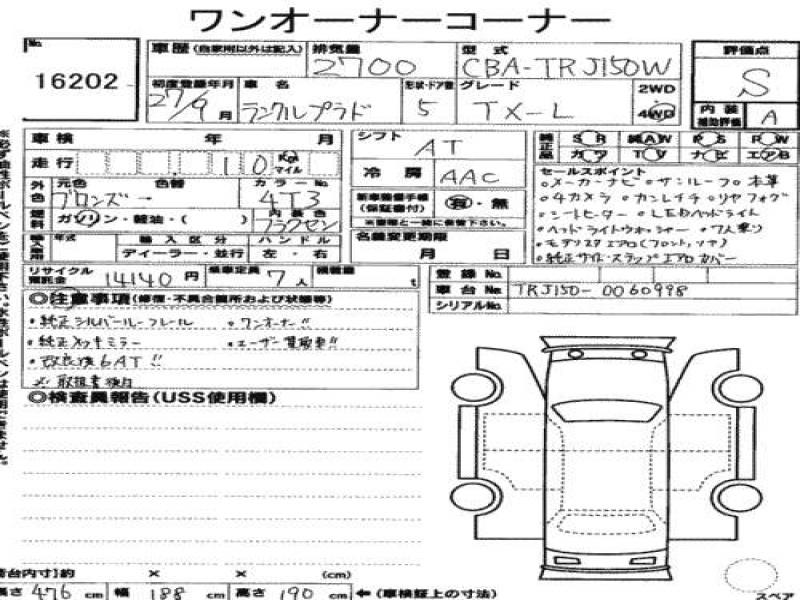 ワンオーナーコーナー
No. 16202
車歴 (自家用以外は記入) 排気量 2700 型式 CBA-TRJ150W 評価点 S
初度登録年月 27/9月 車名 ランクルプラド 形状・ドア数 5 グレード TX-L 2WD 4WD 内装補助評価 A
車検 年 月 シフト AT 純正品 SR 純AW PS PW
走行 10 Km マイル 冷房 AAC カワ TV ナビ エアB
外色 元色 ブロンズ 色替 カラーNo. 4T3 新車整備手帳(保証書付) 有・無
セールスポイント
・メーカーナビ ・サンルーフ ・本革
・4カメラ
・シートヒーター ・LEDヘッドライト
・ヘッドライトウォッシャー ・7人乗り
・モデリスタエアロ(フロント、リヤ)
・純正サイドステップエアロカバー
燃料 ガソリン・軽油・( ) 内装色 ※整備と一緒に保管下さい。
年式 輸入区分 ハンドル 名義変更期限
ディーラー・並行 左・右 月 日
リサイクル預託金 14140円 乗車定員 7人 積載量 t 登録No.
車台No. TRJ150-0060998
シリアルNo.
◎注意事項(修復・不具合箇所および状態等)
・純正シルバールーフレール ・ワンオーナー!!
・純正メッキミラー ・ユーザー買取車!!
・改良後6AT!!
◎検査員報告(USS使用欄)
荷台内寸)約 × × (cm)
長さ 476 cm 幅 188 cm 高さ 190 cm ←(車検証上の寸法) スペア